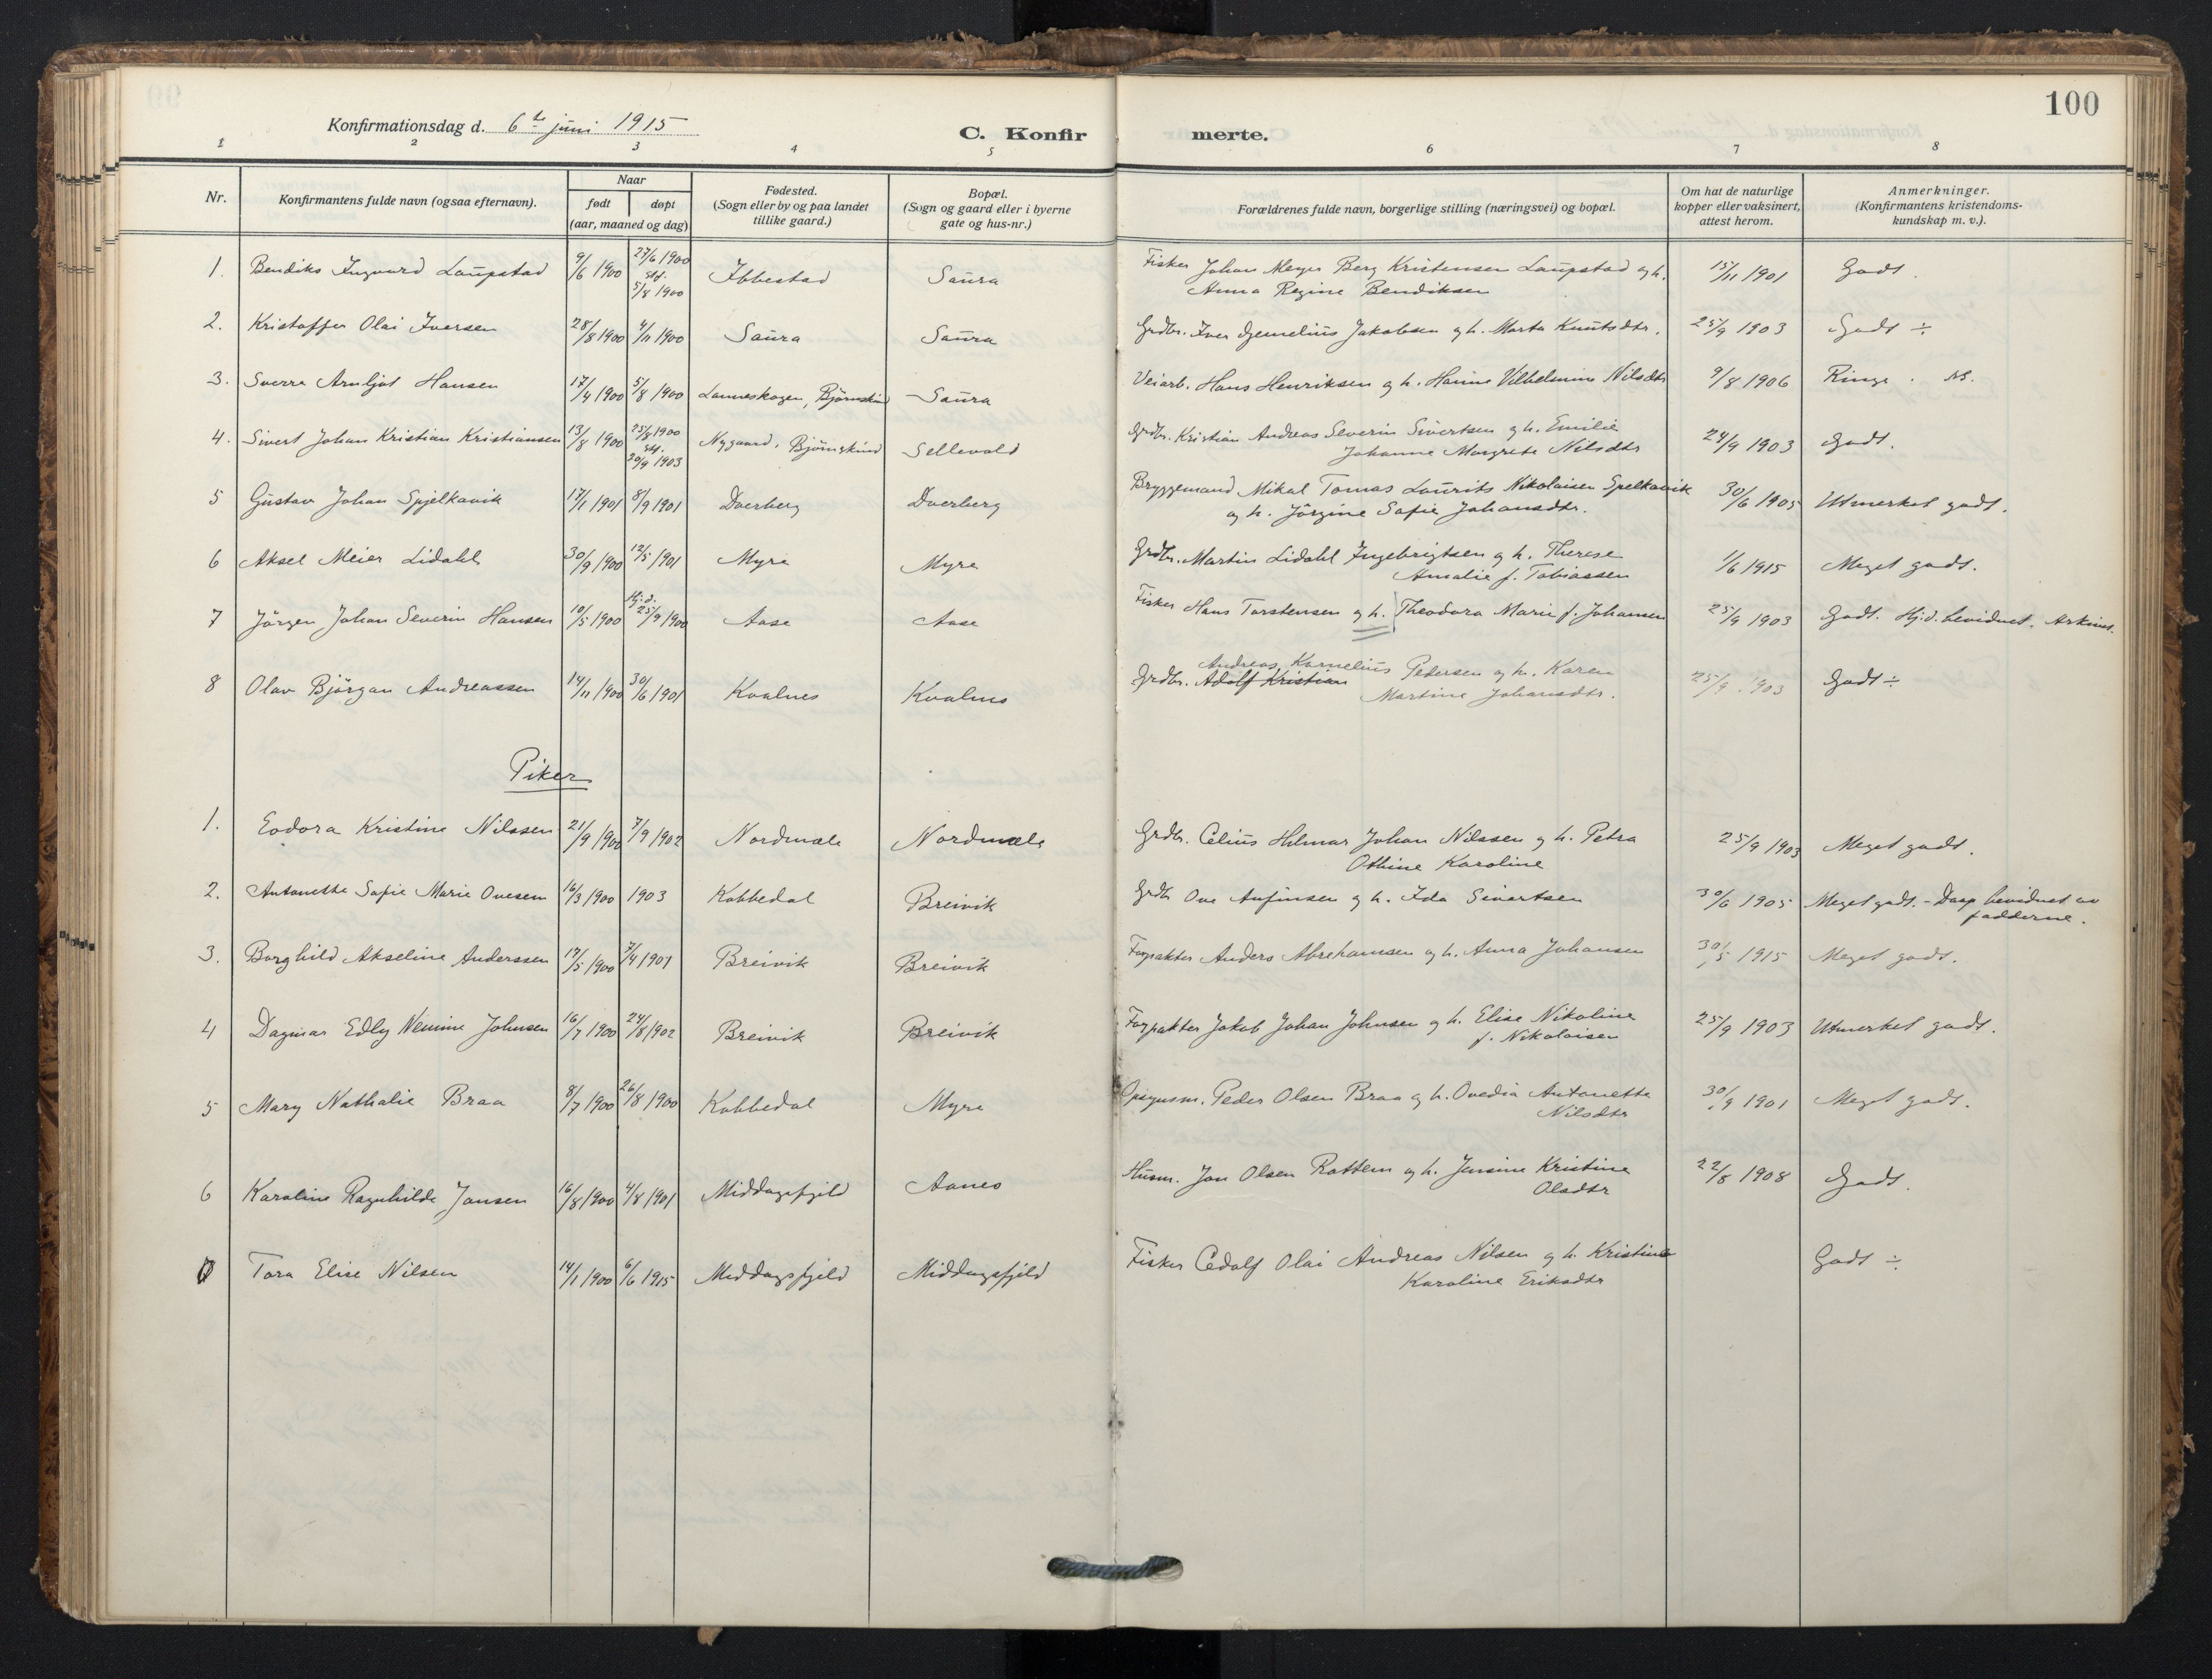 100
Konfirmationsdag d. 6te juni 1915
C. Konfirmerte.
1 2 3 4 5 6 7 8
Nr.
Konfirmantens fulde navn (ogsaa efternavn).
Naar
født
døpt
(aar, maaned og dag)
Fødested.
(Sogn eller by og paa landet
tillike gaard.)
Bopæl.
(Sogn og gaard eller i byerne
gate og hus-nr.)
Forældrenes fulde navn, borgerlige stilling (næringsvei) og bopæl.
Om hat de naturlige
kopper eller vaksinert,
attest herom.
Anmerkninger.
(Konfirmantens kristendoms-
kundskap m. v.).
1. Bendiks Ingvard Laupstad 9/6 1900 27/6 1900 stf. 5/8 1900 Ibbestad Saura Fisker Johan Meyer Berg Kristensen Laupstad og h. 15/11 1901 Godt.
Anna Regine Bendiksen
2. Kristoffer Olai Iversen 28/8 1900 4/11 1900 Saura Saura Grdbr. Iver Jakobsen og h. Marta Knutsdtr. 25/9 1903 Godt ÷
3. Sverre Arnljot Hansen 17/4 1900 5/8 1900 Lanneskogen, Bjørnskind Saura Veiarb. Hans Henriksen og h. Hanna Vilhelmine Nilsdtr 9/8 1906 Ringe.
4. Sivert Johan Kristian Kristiansen 13/8 1900 25/8 1900 stf. 20/9 1903 Nygaard, Bjørnskind Sellevold Grdbr. Kristian Andreas Severin Sivertsen og h. Emilie 24/9 1903 Godt.
Johanne Margrete Nilsdtr
5 Gustav Johan Spjelkavik 17/1 1901 8/9 1901 Dverberg Dverberg Bryggemand Mikal Tomas Laurits Nikolaisen Spelkavik 30/6 1905 Utmerket godt.
og h. Jörgine Sofie Johansdtr.
6 Aksel Meier Lidahl 30/9 1900 12/5 1901 Myre Myre Grdbr. Martin Lidahl Ingebrigtsen og h. Therese 1/6 1915 Meget godt.
Amalie f. Tobiassen
7 Jörgen Johan Severin Hansen 10/5 1900 Hj.d. 25/9 1900 Aase Aase Fisker Hans Torstensen og h. Theodora Marie f. Johansen 25/9 1903 Godt. Hj.d. bevidnet.
8 Olav Björgan Andreassen 14/11 1900 30/6 1901 Kvalnes Kvalnes Grdbr. Adolf Kristian Andreas Kornelius Petersen og h. Karen 25/9 1903 Godt ÷
Martine Johansdtr.
Piker
1. Eodora Kristine Nilssen 21/9 1900 7/9 1902 Nordmæle Nordmæle Grdbr. Celius Hilmar Johan Nilssen og h. Petra 25/9 1903 Meget godt.
Othine Karoline
2. Antonette Sofie Marie Ovesen 16/3 1900 1903 Kobbedal Breivik Grdbr Ove Anfinsen og h. Ida Sivertsen 30/6 1905 Meget godt. - Daap bevidnet av
fadderne.
3. Borghild Akseline Anderssen 17/5 1900 7/4 1901 Breivik Breivik Forpakter Anders Abrehamsen og h. Anna Johansen 30/5 1915 Meget godt.
4 Dagmar Edly Nemine Johnsen 16/7 1900 24/8 1902 Breivik Breivik Forpakter Jakob Johan Johnsen og h. Elise Nikoline 25/9 1903 Utmerket godt.
f. Nikolaisen
5 Mary Nathalie Braa 8/7 1900 26/8 1900 Kobbedal Myre Opsynsm. Peder Olsen Braa og h. Ovedia Antonette 30/9 1901 Meget godt.
Nilsdtr
6 Karoline Ragnhilde Jansen 16/8 1900 4/8 1901 Middagsfjeld Aanes Husm. Jon Olsen Rottem og h. Jensine Kristine 22/8 1908 Godt.
Olsdtr
7 Tora Elise Nilsen 14/1 1900 6/6 1915 Middagsfjeld Middagsfjeld Fisker Cedolf Olai Andreas Nilsen og h. Kristine Godt ÷
Karoline Eriksdtr